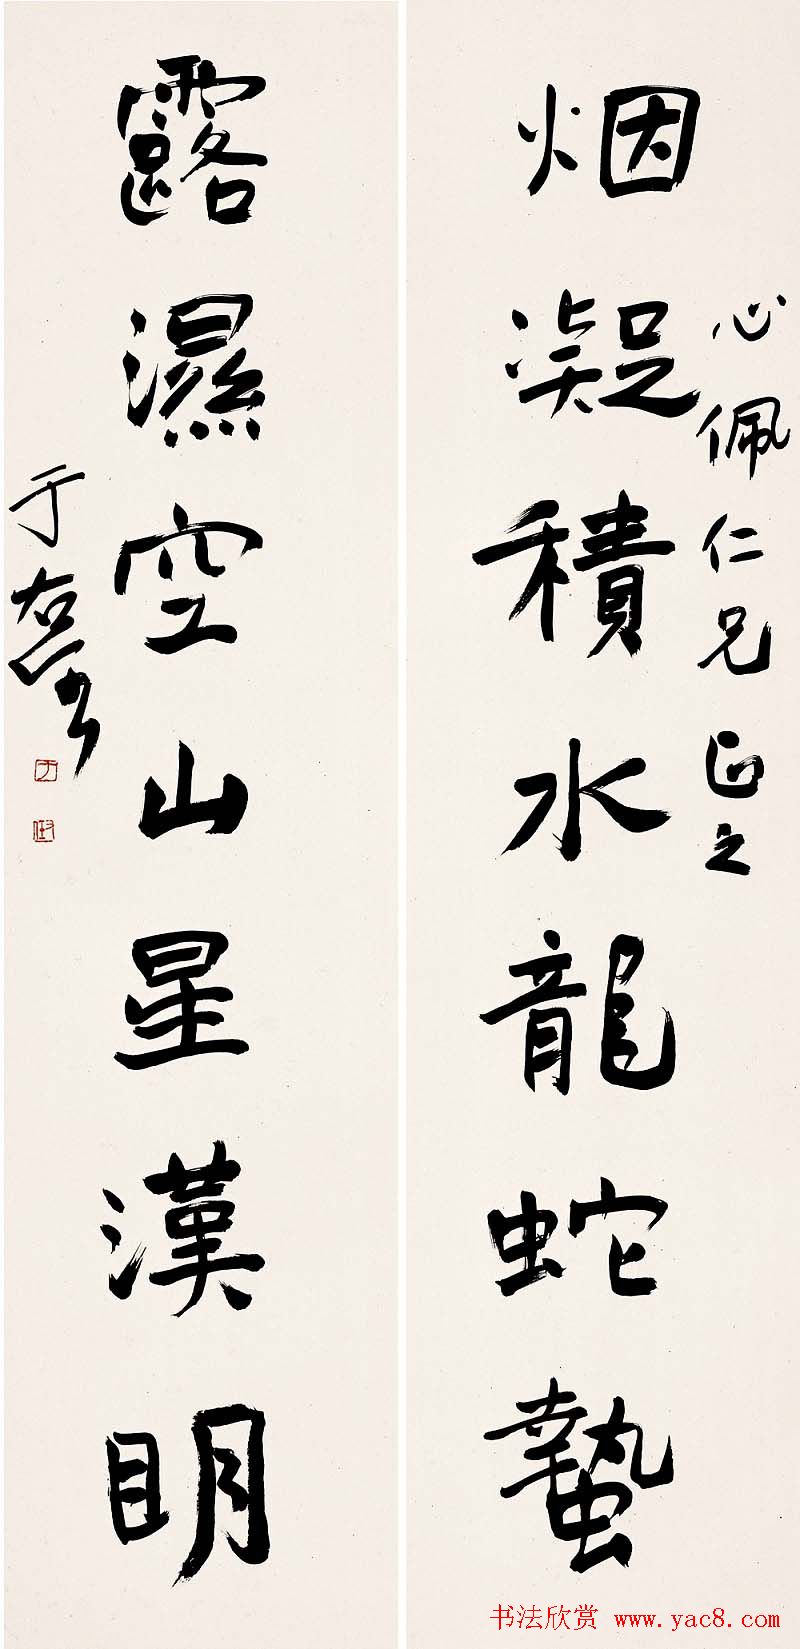 心佩仁兄正之
烟凝積水龍蛇蟄
露濕空山星漢眀
于右任
右任
书法欣赏 www.yac8.com